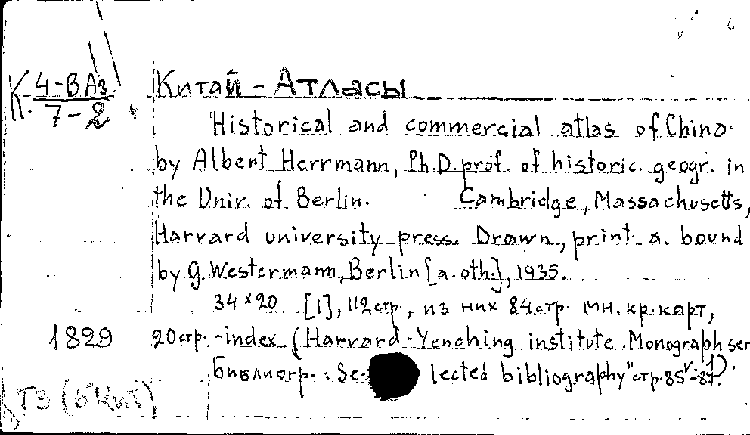 К. 4-ВАз
7-2
Китай - Атласы
Historical and commercial atlas of China
by Albert Herrmann, Ph.D. prof. of historic. geogr. in
the Univ. of Berlin. Cambridge, Massachusetts,
Harvard university press. Drawn, print. a. bound
by G. Westermann, Berlin [a. oth.], 1935.
34×20 [1], 112 стр., из них 84 стр. мн. кр. карт,
1829 20 стр. - index (Harvard-Yenching institute. Monograph ser
Библиогр.: "Selected bibliography" стр. 85-87.